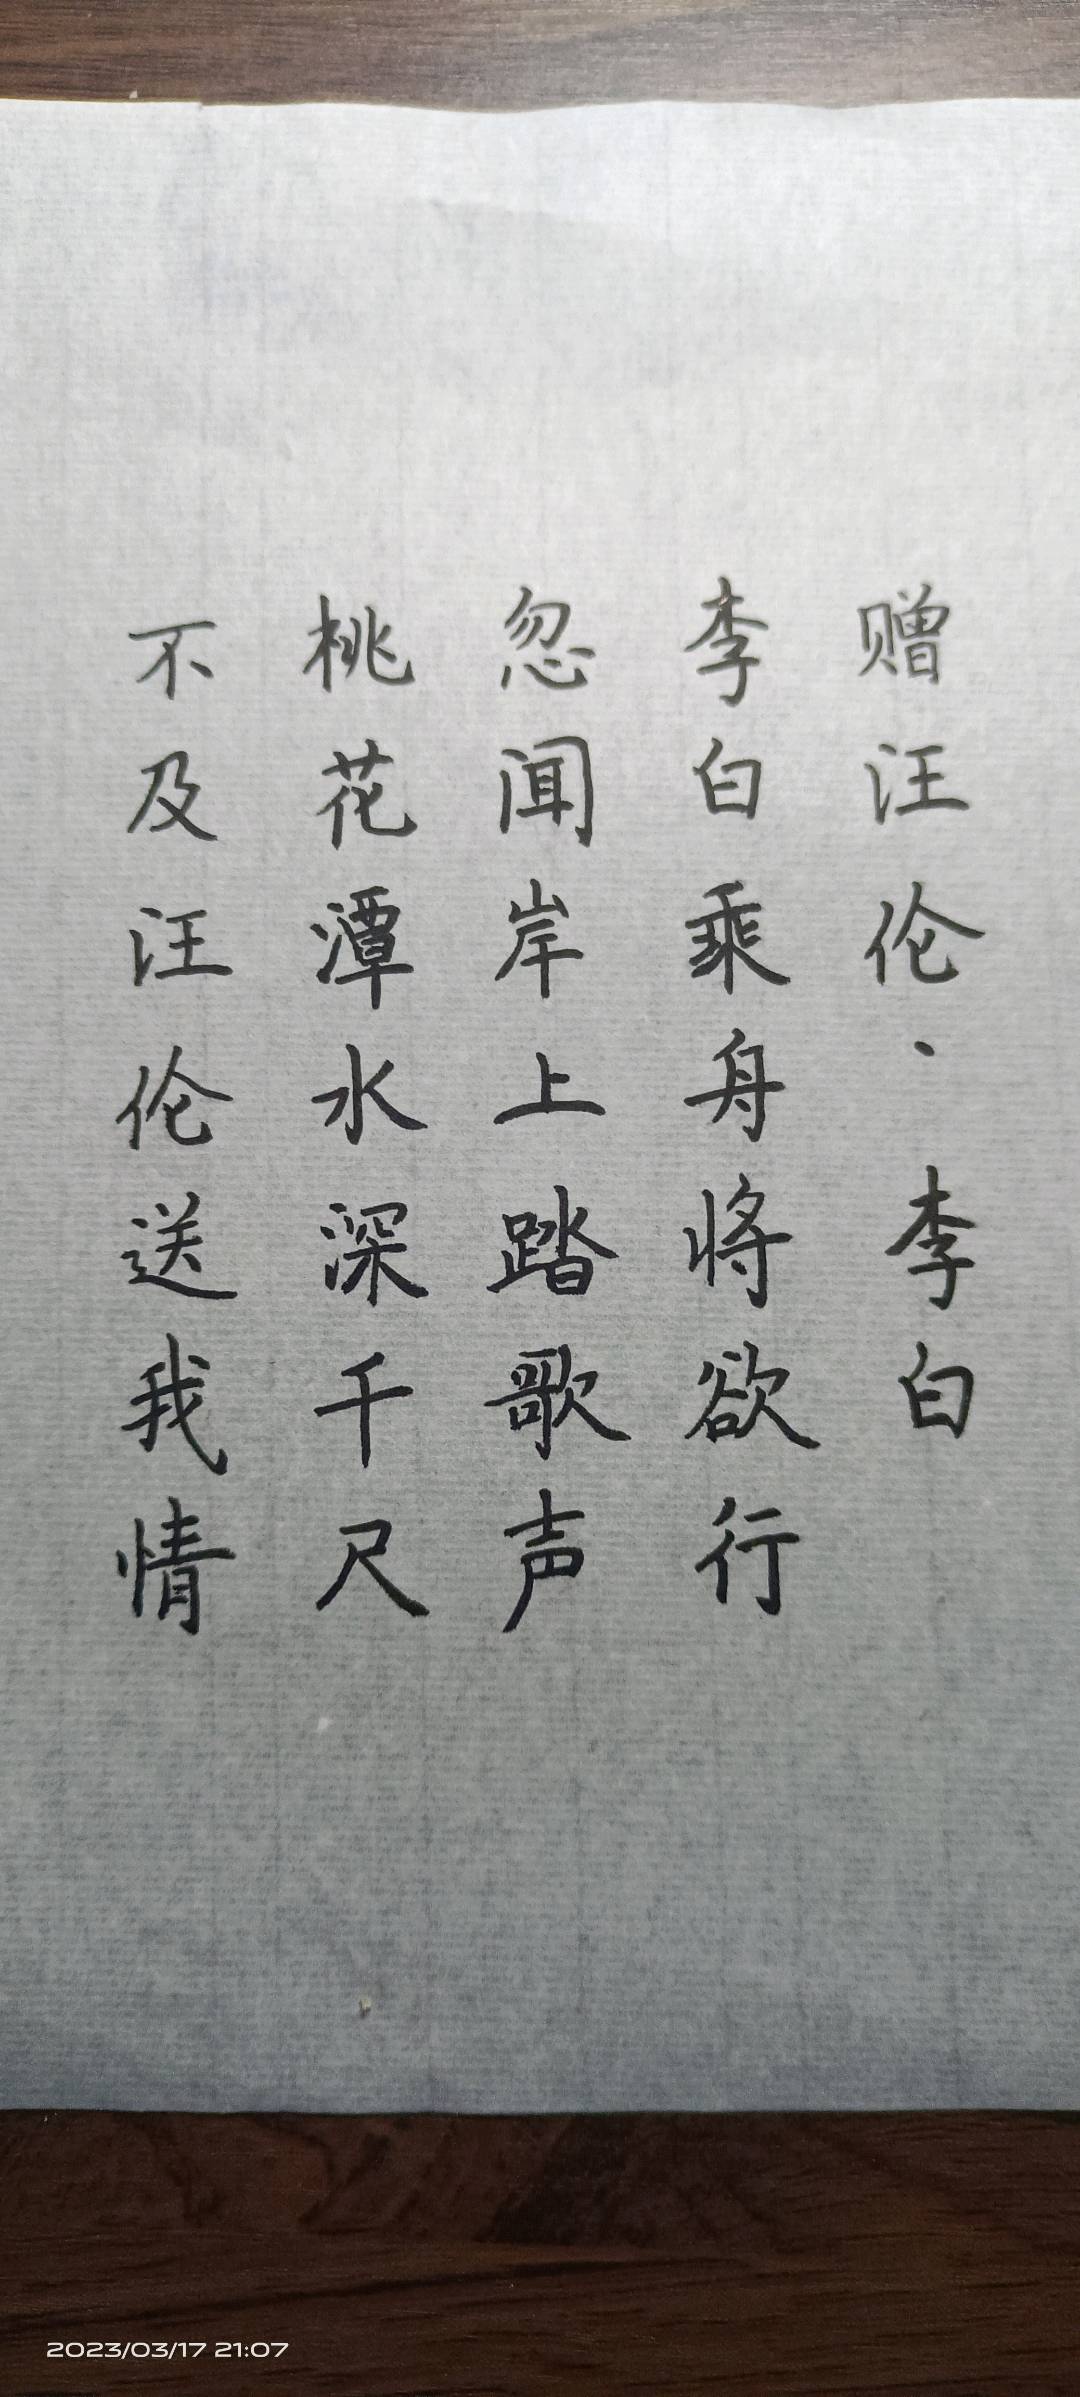 赠汪伦·李白
李白乘舟将欲行
忽闻岸上踏歌声
桃花潭水深千尺
不及汪伦送我情
2023/03/17 21:07